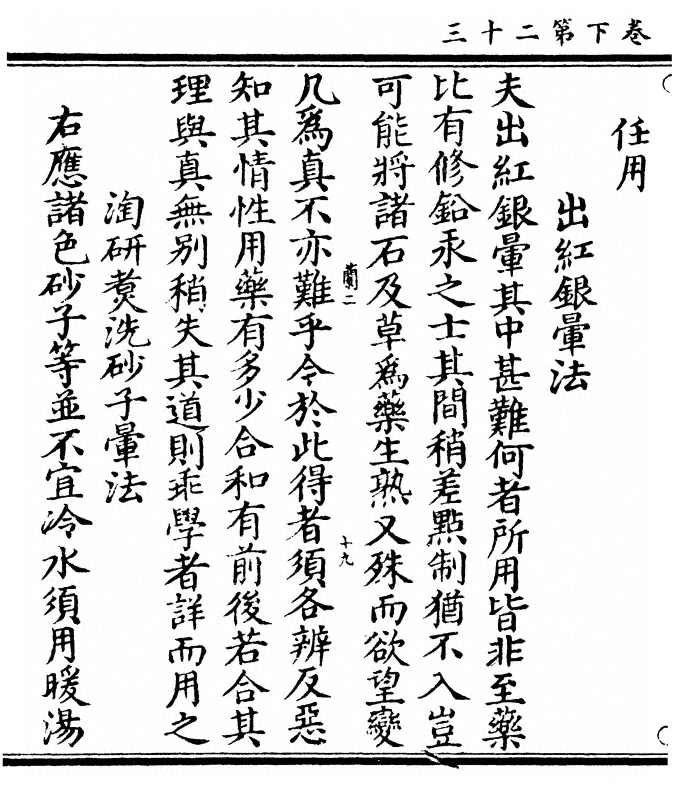 卷下第二十三
任用
出紅銀暈法
夫出紅銀暈其中甚難何者所用皆非至藥
比有修鉛汞之士其間稍差點制猶不入豈
可能將諸石及草爲藥生熟又殊而欲望變
蘭二
十九
几爲真不亦難乎今於此得者須各辨反惡
知其情性用藥有多少合和有前後若合其
理與真無别稍失其道則乖學者詳而用之
淘研煑洗砂子暈法
右應諸色砂子等並不宜冷水須用暖湯